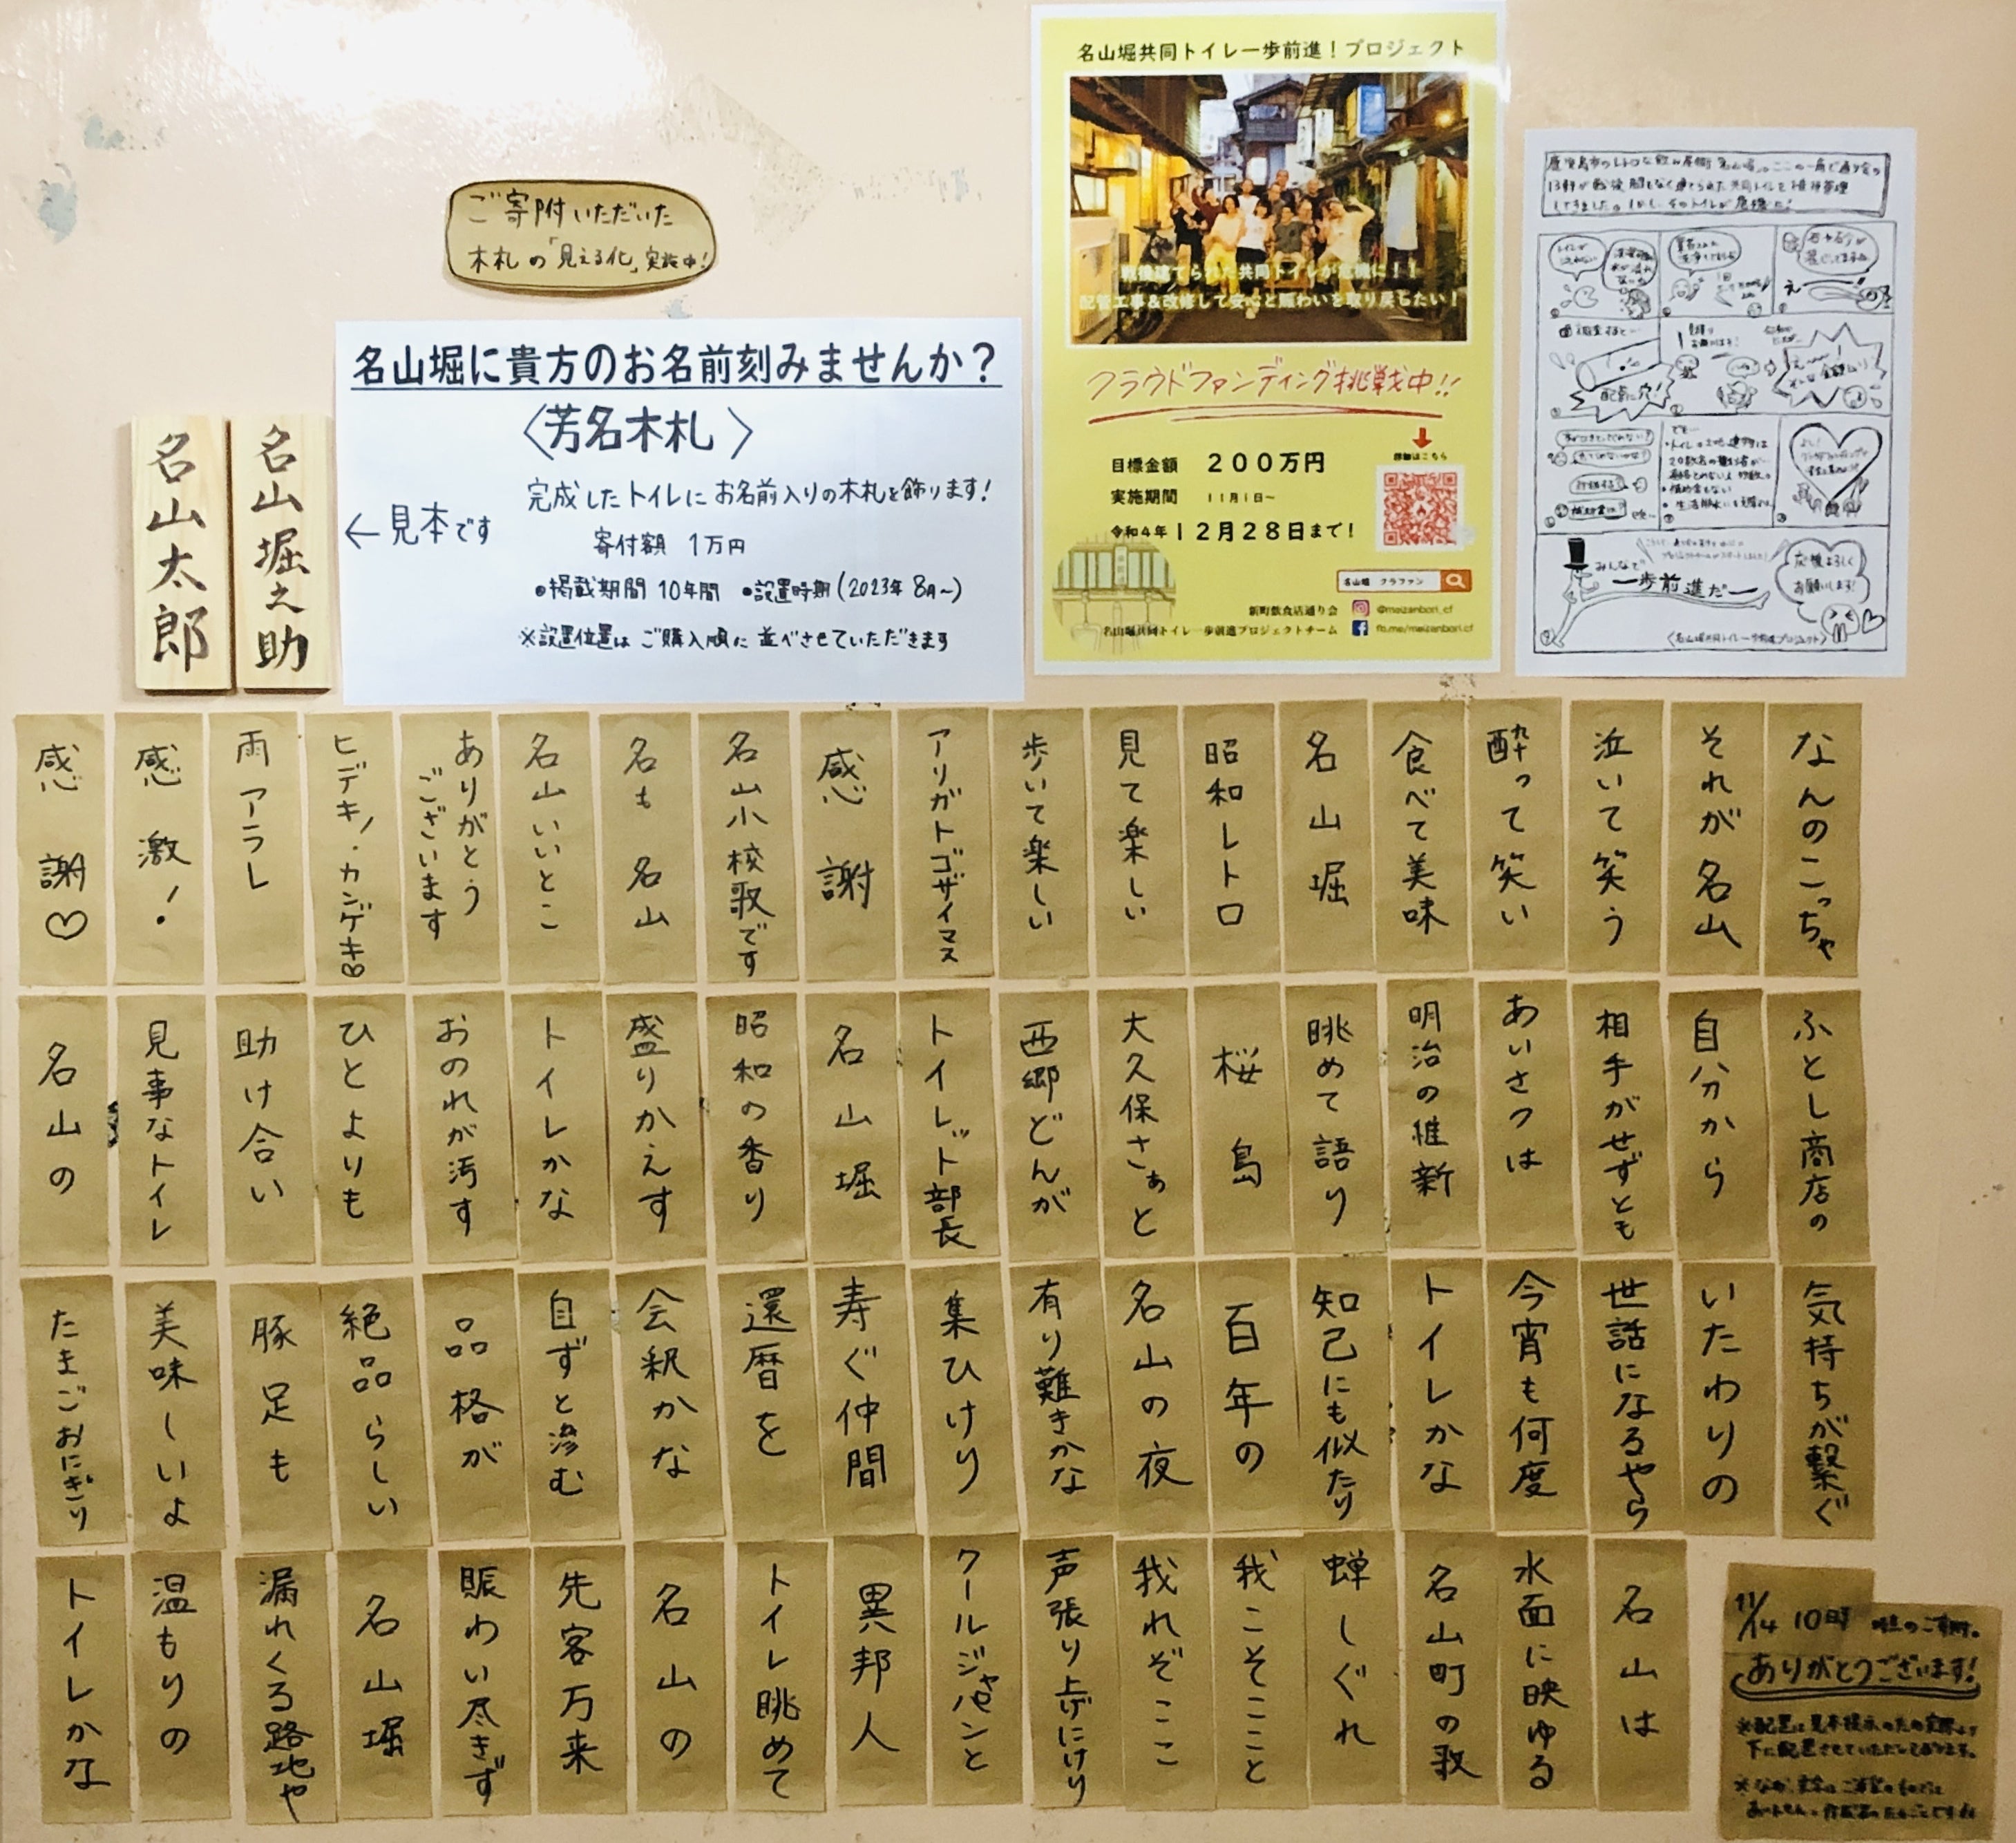 ご寄附いただいた
木札の「見える化」実施中!
名山堀に貴方のお名前刻みませんか?
〈芳名木札〉
完成したトイレにお名前入りの木札を飾ります!
←見本です
寄付額 1万円
●掲載期間 10年間 ●設置時期(2023年 8月~)
※設置位置は ご購入順に 並べさせていただきます
名山堀之助
名山太郎
名山堀共同トイレ一歩前進!プロジェクト
戦後建てられた共同トイレが危機に!!
配管工事&改修して安心と賑わいを取り戻したい!
クラウドファンディング挑戦中!!
詳細はこちら
目標金額 200万円
実施期間 11月1日~
令和4年12月28日まで!
名山堀 クラファン
新町飲食店通り会 @meizanbori_cf
名山堀共同トイレ一歩前進プロジェクトチーム fb.me/meizanbori.cf
配管に穴!
みんなで
一歩前進だー
応援よろしく
お願いします!
〈名山堀共同トイレ一歩前進プロジェクト〉
なんのこっちゃ
それが名山
泣いて笑う
酔って笑い
食べて美味
名山堀
昭和レトロ
見て楽しい
歩いて楽しい
アリガトゴザイマス
感謝
名山小校歌です
名も名山
名山いいとこ
ありがとう
ございます
ヒデキ!カンゲキ♡
雨アラレ
感激!
感謝♡
ふとし商店の
自分から
相手がせずとも
あいさつは
明治の維新
眺めて語り
桜島
大久保さぁと
西郷どんが
トイレット部長
名山堀
昭和の香り
盛りかえす
トイレかな
おのれが汚す
ひとよりも
助け合い
見事なトイレ
名山の
気持ちが繋ぐ
いたわりの
世話になるやら
今宵も何度
トイレかな
知己にも似たり
百年の
名山の夜
有り難きかな
集ひけり
寿ぐ仲間
還暦を
会釈かな
自ずと滲む
品格が
絶品らしい
豚足も
美味しいよ
たまごおにぎり
名山は
水面に映ゆる
名山町の歌
蝉しぐれ
我こそここと
我れぞここ
声張り上げにけり
クールジャパンと
異邦人
トイレ眺めて
名山の
先客万来
賑わい尽きず
名山堀
漏れくる路地や
温もりの
トイレかな
11/14 10時
ありがとうございます!